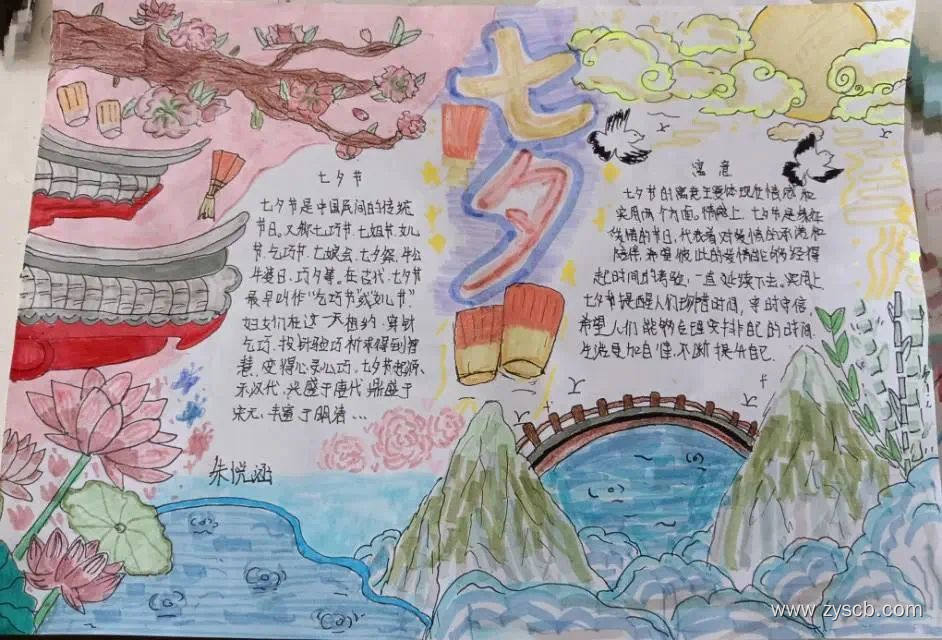 七夕
七夕节
七夕节是中国民间的传统
节日。又称七巧节、七姐节、女儿
节、乞巧节、七娘会、七夕祭、牛公
牛婆日、巧夕等。在古代,七夕节
最早叫作“乞巧节”或“女儿节”
妇女们在这一天相约,穿针
乞巧,投针验巧祈求得到智
慧,变得心灵心巧,七夕节起源
于汉代,兴盛于唐代鼎盛于
宋元,丰富于明清…
朱悦涵
寓意
七夕节的寓意主要体现在情感和
实用两个方面。情感上,七夕节是象征
爱情的节日,代表着对爱情的承诺和
陪伴,希望彼此的爱情能够经得
起时间的考验,一直延续下去。实用上
七夕节提醒人们珍惜时间,守时守信,
希望人们能够合理安排自己的时间
生活更加自律,不断提升自己.
www.zyscb.com